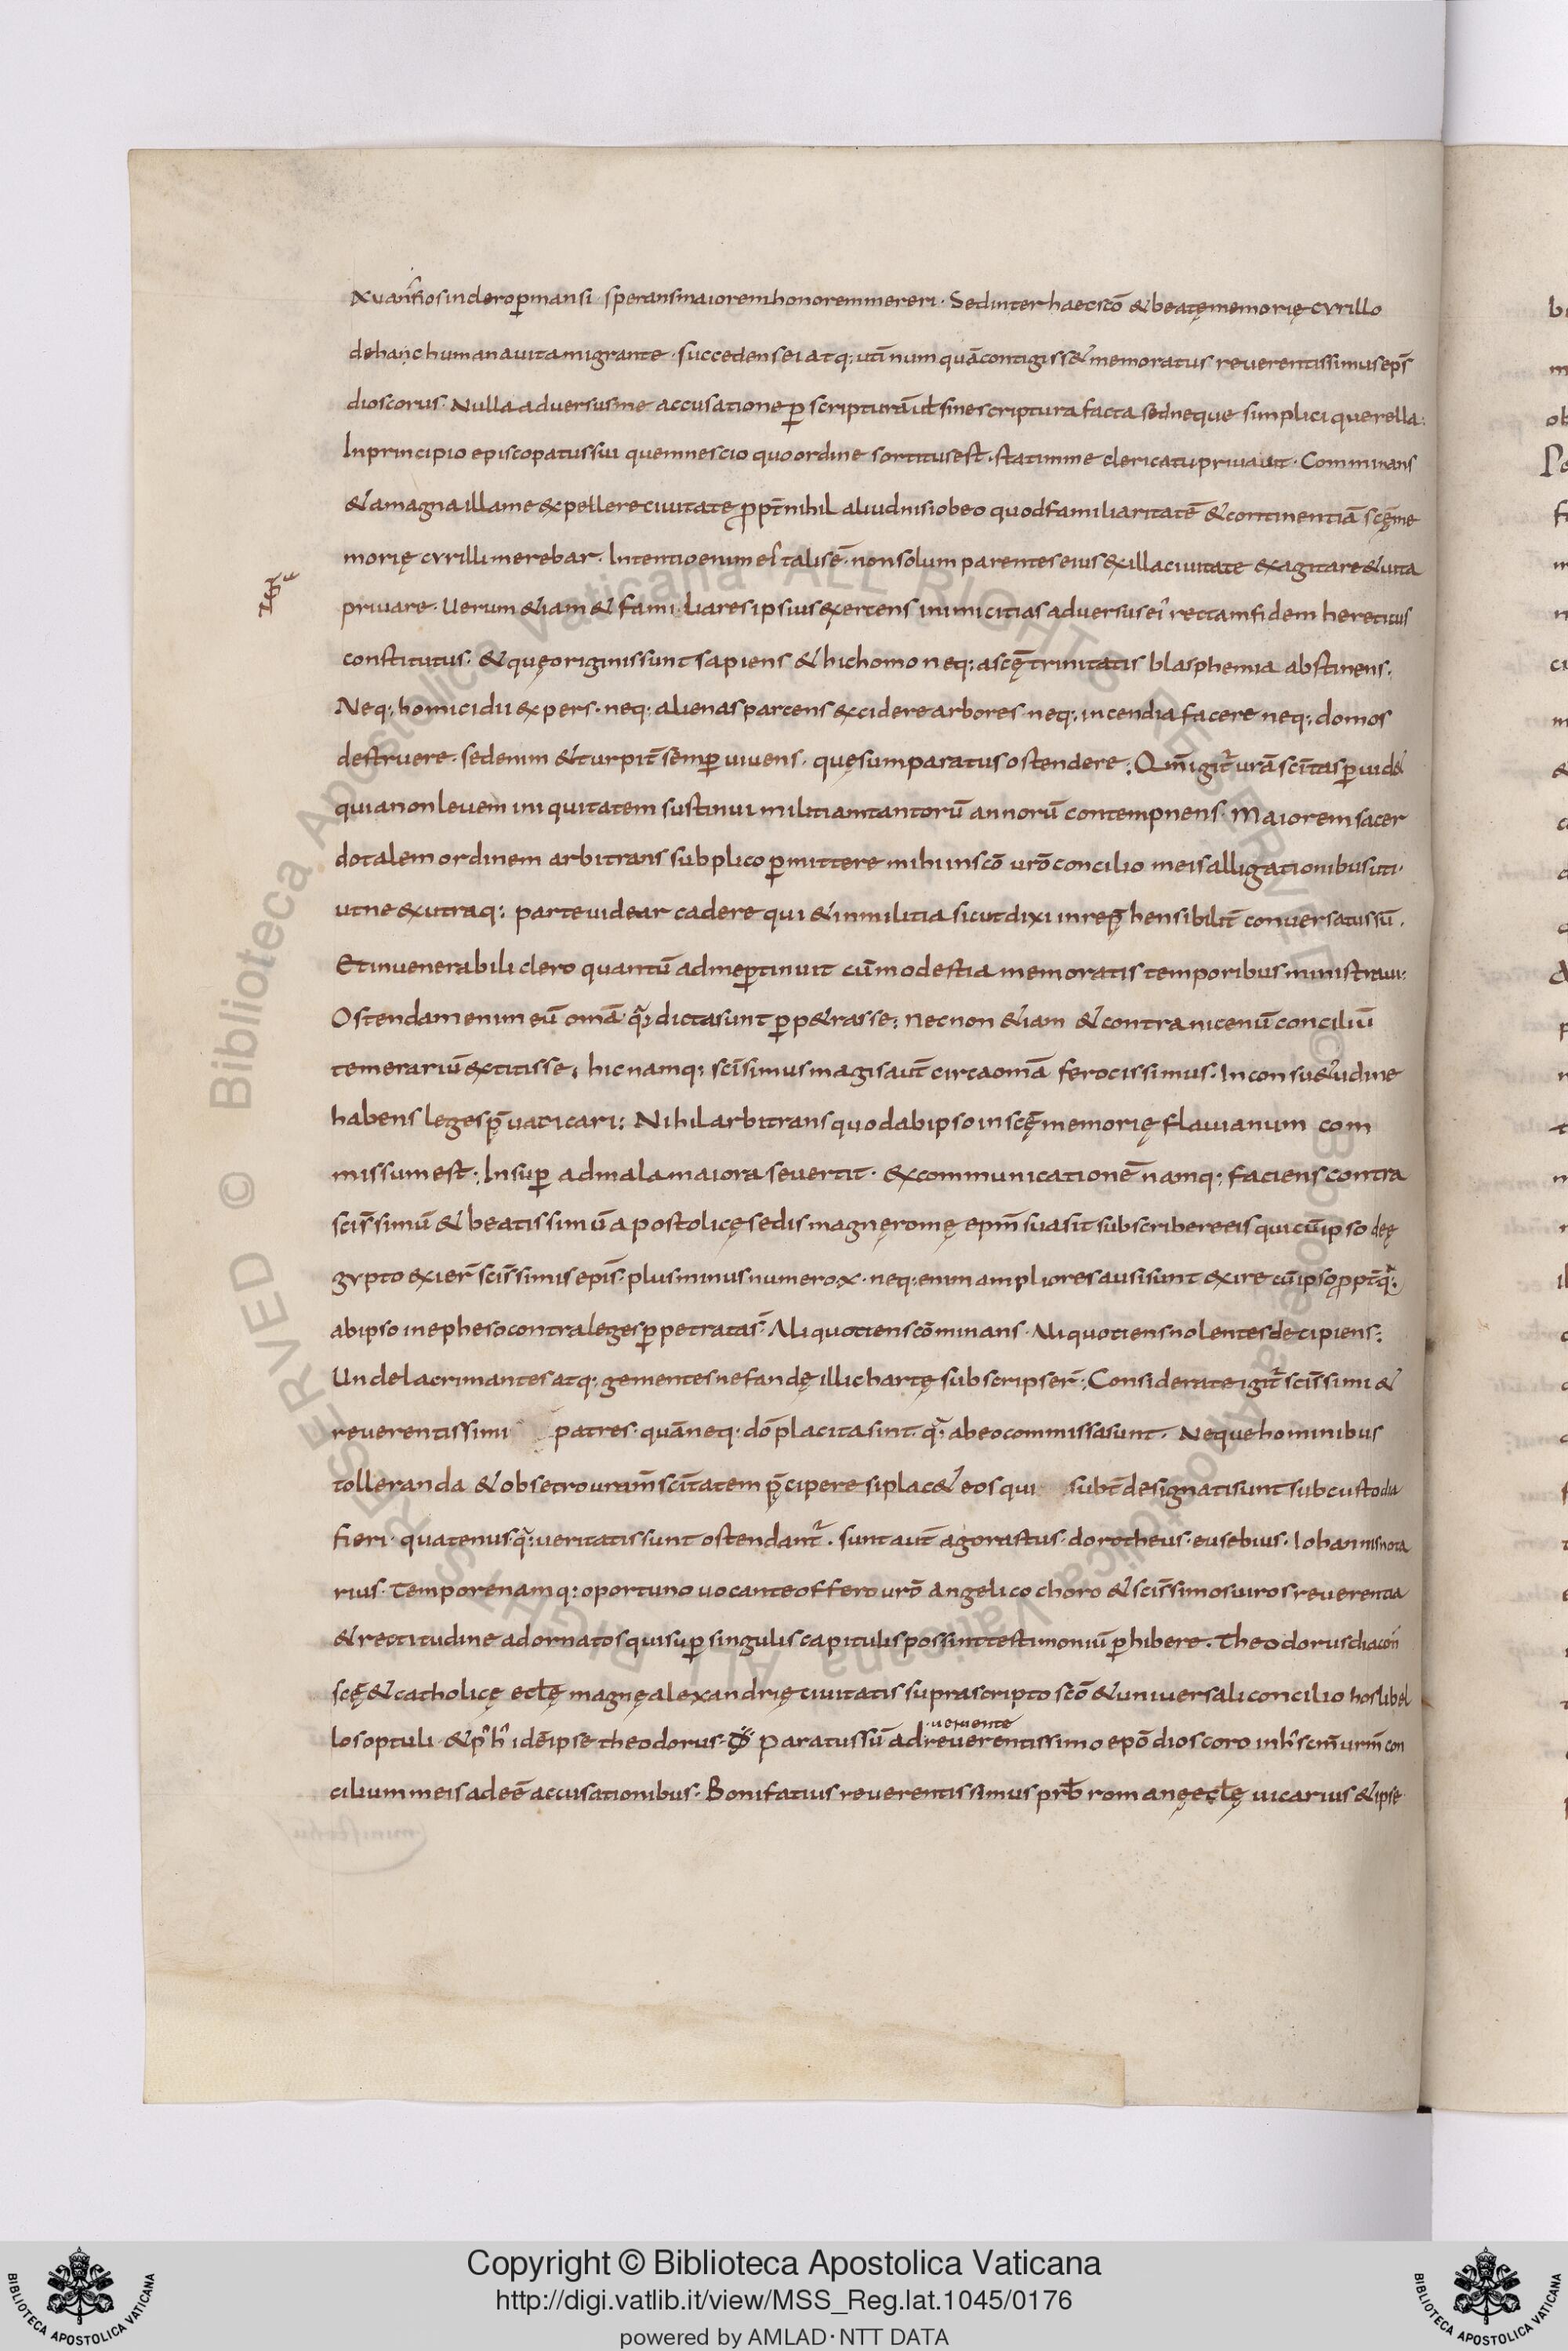 xv annos in clero ꝑmansi · sperans maiorem honorem mereri · Sed inter haec scō & beatę memorię cyrillo
de hanc humana uita migrante · succedens ei atq: utinnumquā contigiss& memoratus reuerentissimus eps̄
dioscorus · Nulla aduersus me accusatione ꝑ scripturā uł sine scriptura facta sed neque simplici querella:
In principio episcopatus sui quem nescio quo ordine sortitus est · statim me clericatu priuauit · Comminans
& a magna illa me expellere ciuitate ꝓpt̄ nihil aliud nisi ob eo quod familiaritatē & continentiā scę̄ me
morię cyrilli merebar · Intentio enim ei talis ē · non solum parentes eius ex illa ciuitate exagitare & uita
priuare · Uerum &iam & famili·liares ipsius exercens inimicitias aduersus ei rectam fidem hereticus
constitutus · & quę originis sunt sapiens & hic homo neq: a scę̄ trinitatis blasphemia abstinens;
Neq: homicidii expers · neq: alienas parcens excidere arbores · neq: incendia facere neq: domos
destruere · sed enim & turpit̄ semꝑ uiuens · quę sum paratus ostendere; Qm̄ igit̄ urā scītas ꝑuid&
quia non leuem iniquitatem sustinui militiam tantorū annorū contempnens · Maiorem sacer
dotalem ordinem arbitrans subplico ꝑmittere mihi in scō urō concilio meis alligationibus uti ·
ut ne ex utraq: parte uidear cadere qui & in militia sicut dixi inrep̄hensibilit̄ conuersatus sū ·
Et in uenerabili clero quantū ad me ꝑtinuit cū modestia memoratis temporibus ministraui:
Ostendam enim eū omā · q̄; dicta sunt ꝑp&rasse; nec non &iam & contra nicenū conciliū
temerariū extitisse; hic namq: scīsimus magis aut̄ circa omā ferocissimus · In consu&udine
habens leges p̄uaricari; Nihil arbitrans quod ab ipso in scę̄ memorię flauianum com
missum est; Insuꝑ ad mala maiora se uertit · excommunicationē namq: faciens contra
scīssimū & beatissimū apostolicę sedis magnę romę epm̄ suasit subscribere eis qui cū ipso de ę
gypto exier̄ scīssimis epīs · plus minus numero x · neq: enim ampliores ausi sunt exire cū ipso ꝓpt̄ q̄;
ab ipso in epheso contra leges ꝑpetratas · Aliquotiens cōminans · Aliquotiens nolentes decipiens;
Unde lacrimantes atq: gementes nefandę illi chartę subscripser̄; Considerate igit̄ scīssimi &
reuerentissimi patres · quā neq · dō placita sint · q̄; ab eo commissa sunt · Neque hominibus
tolleranda & obsecro uram̄ scītatem p̄cipere si plac& eos qui subt̄ designati sunt sub custodia
fieri · quatenus q̄; ueritatis sunt ostendant̄ · sunt aut̄ agorastus · dorotheus · eusebius · Iohannis nota
rius · Tempore namq: oportuno uocante offero urō angelico choro & scīssimos uiros reuerentia
& rectitudine adornatos qui suꝑ singulis capitulis possint testimoniū ꝑhibere · Theodorus diacon̄
scę̄ & catholicę ecłę magnę alexandrię ciuitatis suprascripto scō & uniuersali concilio hos libel
los optuli · & p̄ h̄ idē ipse theodorus · Paratus sū ad · ueniente reuerentissimo epō dioscoro in h̄ scm̄ urm̄ con
cilium meis adeē accusationibus · Bonifatius reuerentissimus prb̄ romanę ecłę uicarius & ipse
Copyright © Biblioteca Apostolica Vaticana
http://digi.vatlib.it/view/MSS_Reg.lat.1045/0176
powered by AMLAD · NTT DATA